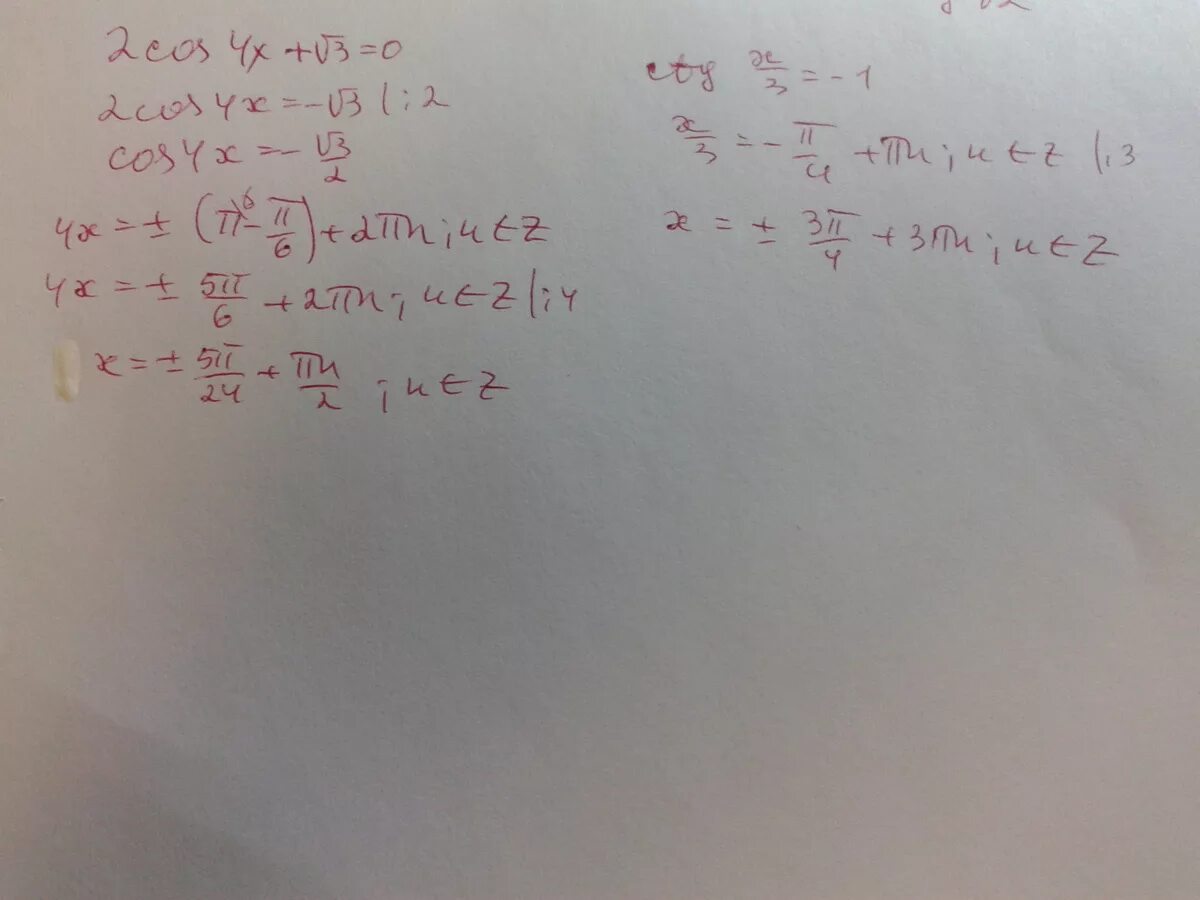 2cos 4x + √3 = 0
2cos 4x = -√3 | : 2
cos 4x = - √3/2
4x = ± (π⁶ - π/6) + 2πn ; n ∈ Z
4x = ± 5π/6 + 2πn ; n ∈ Z | : 4
x = ± 5π/24 + πn/2 ; n ∈ Z
ctg x/3 = -1
x/3 = - π/4 + πn ; n ∈ Z | . 3
x = ± 3π/4 + 3πn ; n ∈ Z